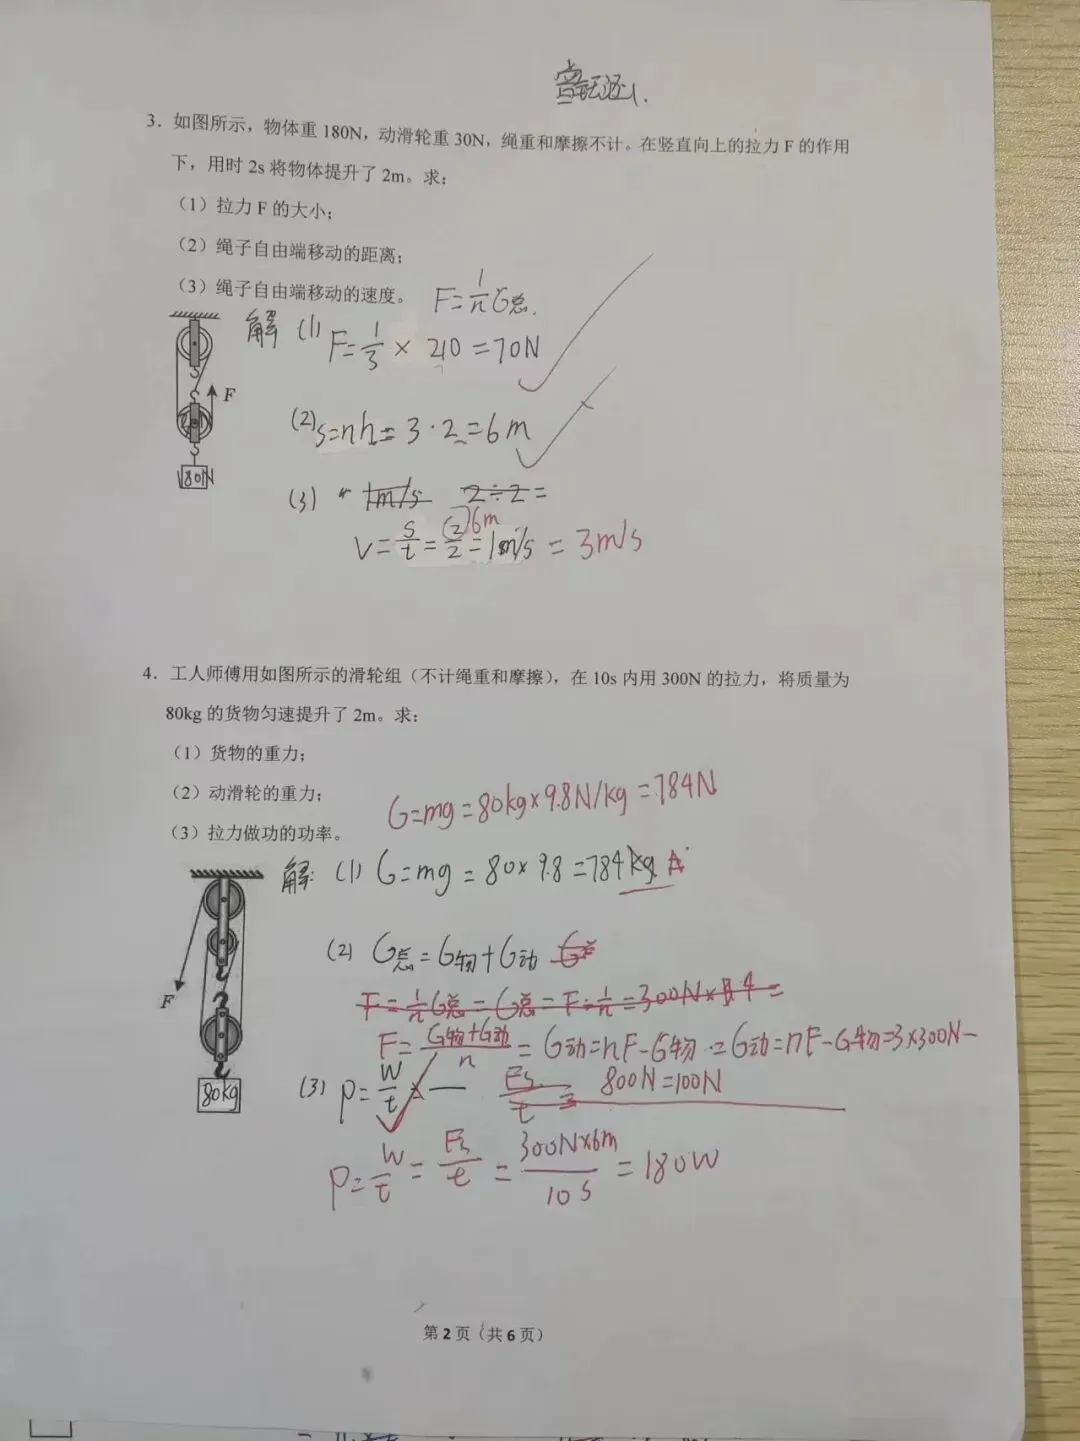 3. 如图所示，物体重 180N，动滑轮重 30N，绳重和摩擦不计。在竖直向上的拉力 F 的作用
下，用时 2s 将物体提升了 2m。求：
（1）拉力 F 的大小；
（2）绳子自由端移动的距离；
（3）绳子自由端移动的速度。
F=1/n G总.
解 (1) F=1/3 × 210 =70N
F
180N
(2) s=nh=3·2=6m
(3) 1m/s 2÷2=
V=s/t=2/2=1m/s =3m/s
6m
4. 工人师傅用如图所示的滑轮组（不计绳重和摩擦），在 10s 内用 300N 的拉力，将质量为
80kg 的货物匀速提升了 2m。求：
（1）货物的重力；
（2）动滑轮的重力；
（3）拉力做功的功率。
G=mg=80kg×9.8N/kg=784N
解: (1) G=mg=80×9.8=784kg.
F
80kg
(2) G总=G物+G动
F=1/n G总=G总=F÷1/n=300N×
F=G物+G动/n =G动=nF-G物 =G动=nF-G物=3×300N-
800N=100N
(3) P=W/t= Fs/t =
P=W/t=Fs/t=300N×6m/10s=180W
第 2 页（共 6 页）